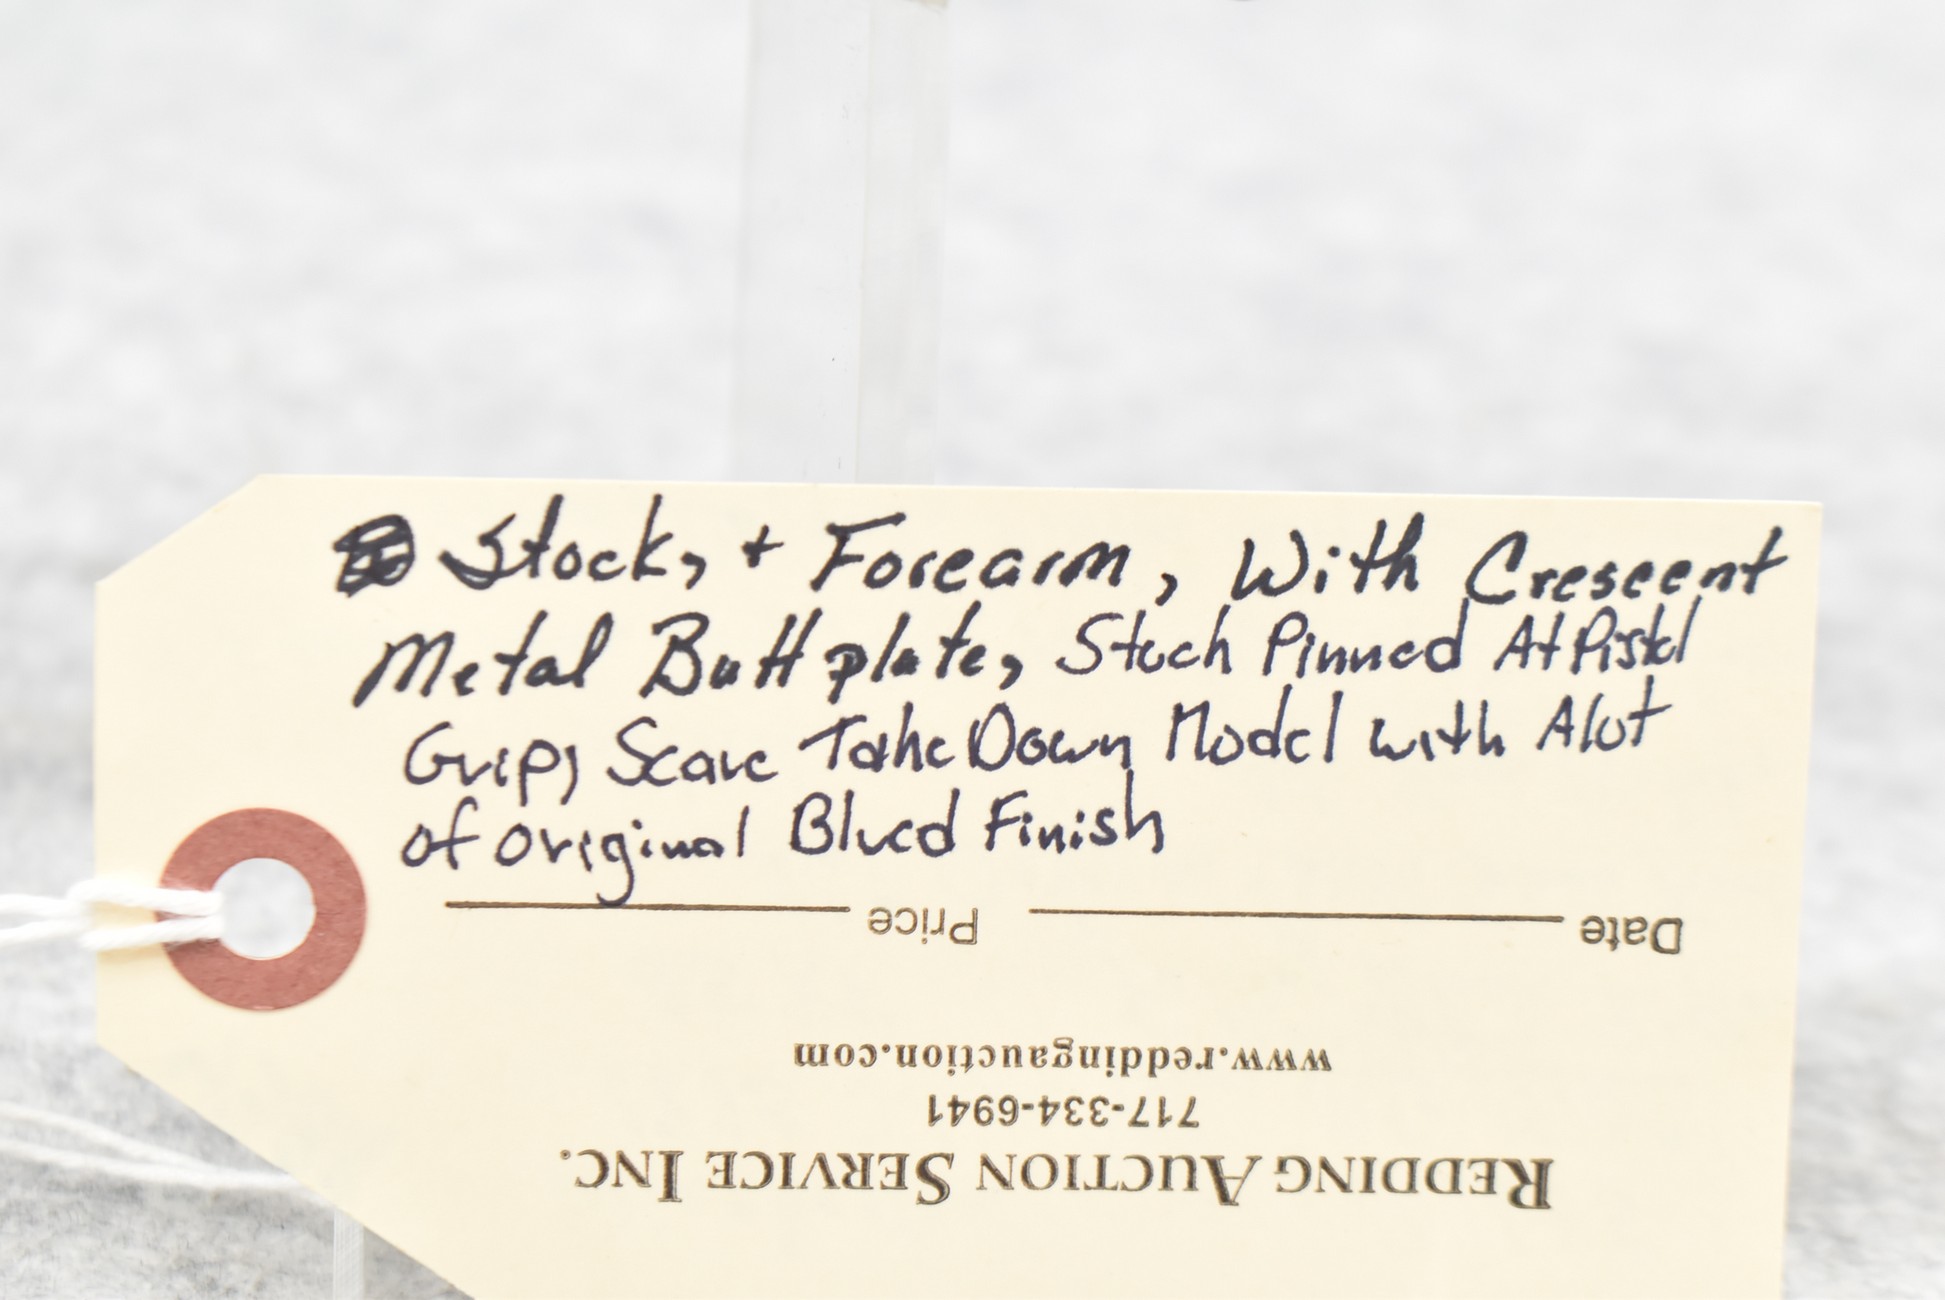 Stock, + Forearm, With Crescent
Metal Buttplate, Stock Pinned At Pistol
Grip, Scarc Take Down Model with Alot
of original Blued Finish
Price Date
www.reddingauction.com
717-334-6941
REDDING AUCTION SERVICE INC.